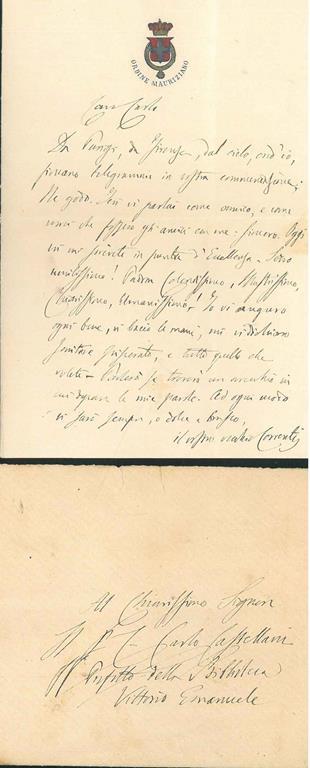 ORDINE MAURIZIANO
Caro Carlo
Da Parigi, da Firenze, dal cielo, ond'io,
piovano telegrammi in vostra commendazione;
Ne godo. Ieri vi parlai come amico, e come
vorrei che fossero gli amici con me: sincero. Oggi
mi scrivete in punta d'Eccellenza. Servo
umilissimo! Padron Colendissimo, Illustrissimo,
Chiarissimo, Umanissimo! Io vi auguro
ogni bene, vi bacio le mani, mi vi dichiaro
servitore, e tutto quello che
volete.
le mie parole. Ad ogni modo
vi sarò sempre, e dolce e brusco,
il vostro vecchio Correnti
Al Chiarissimo Signore
Il S. C. Carlo Castellani
Prefetto della Biblioteca
Vittorio Emanuele